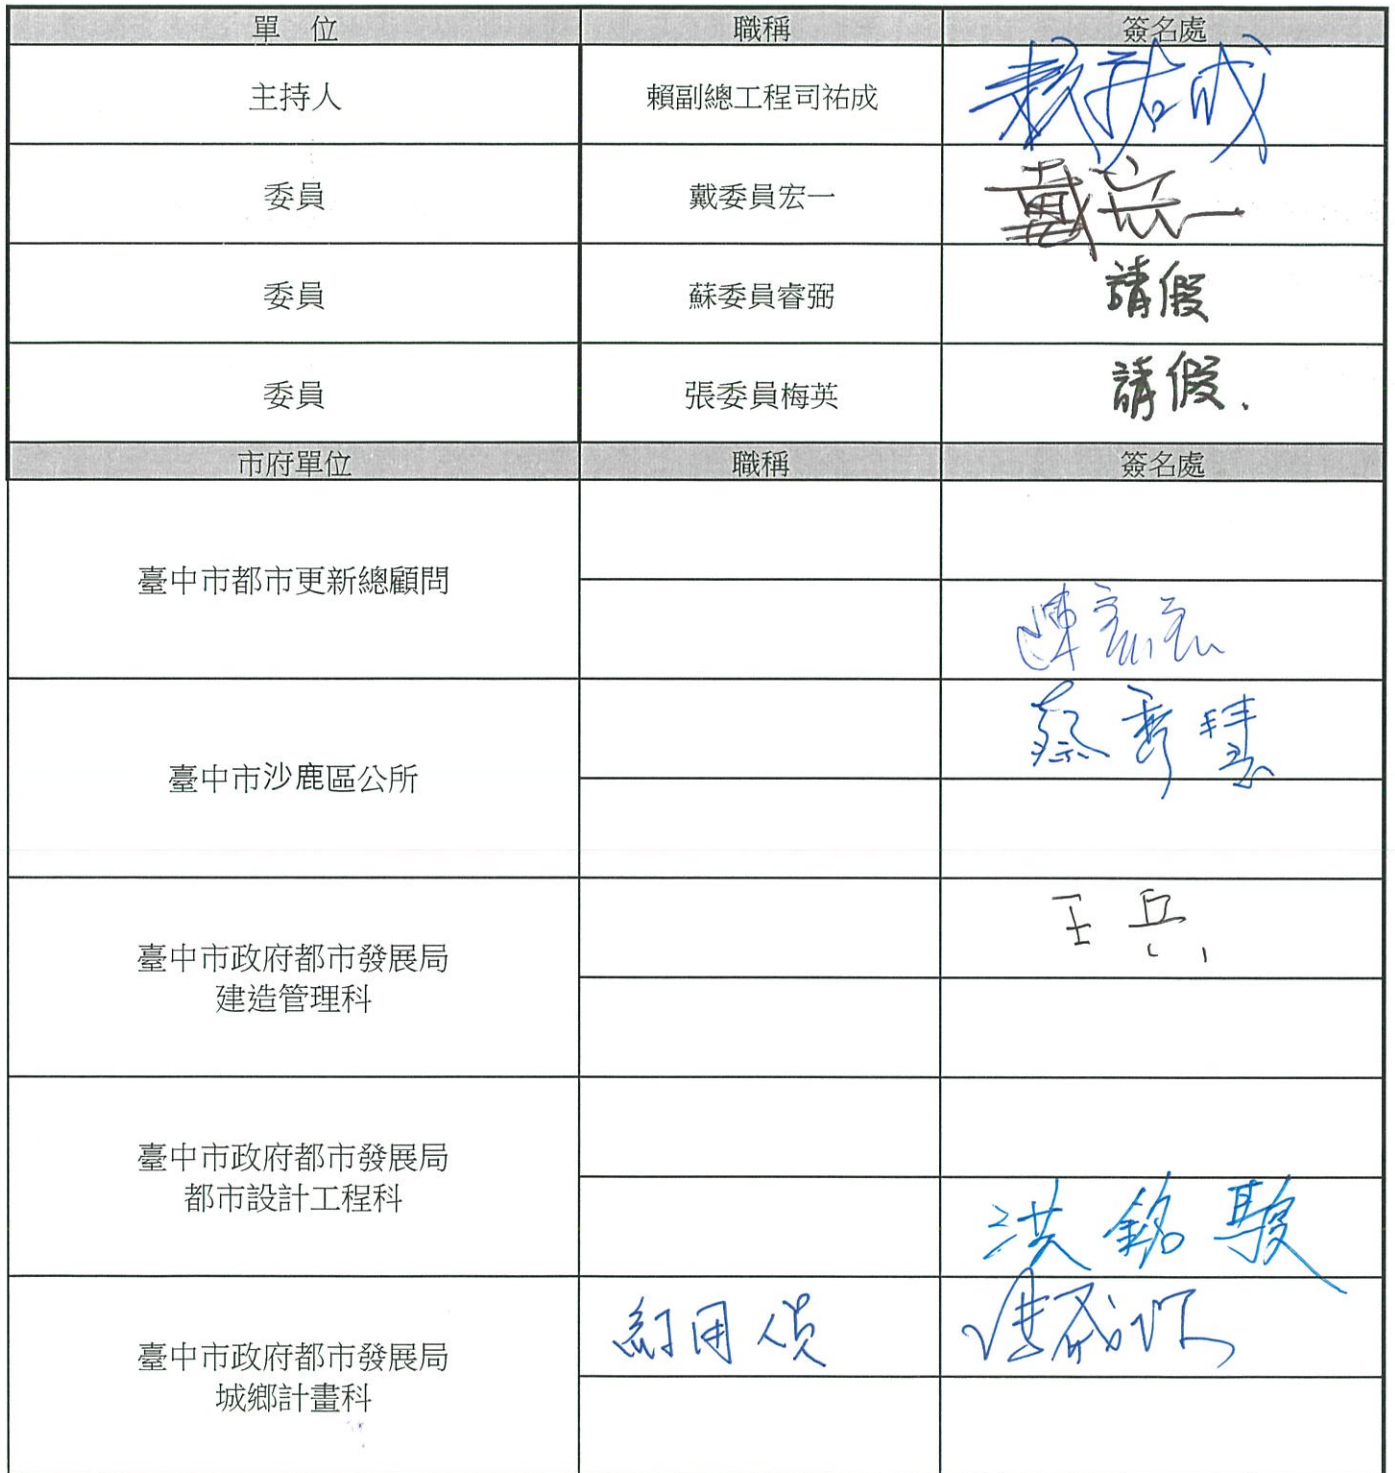 單 位 職稱 簽名處
主持人 賴副總工程司祐成 賴祐成
委員 戴委員宏一 戴宏一
委員 蘇委員睿弼 請假
委員 張委員梅英 請假.
市府單位 職稱 簽名處
臺中市都市更新總顧問
陳
臺中市沙鹿區公所 蔡秀慧
臺中市政府都市發展局
建造管理科
王兵
臺中市政府都市發展局
都市設計工程科
洪銘駿
臺中市政府都市發展局
城鄉計畫科
約用人員